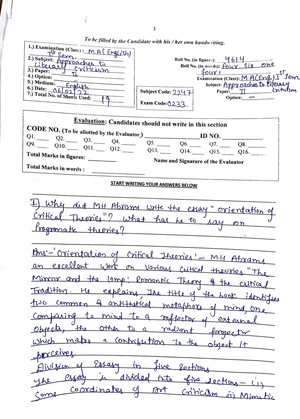 1
To be filled by the Candidate with his / her own hand-writing.
1.) Examination (Class): M.A (English)
Ist Sem.
2.) Subject: Approaches to
Literary Criticism
3.) Paper: II
4.) Option: -
5.) Medium: English
6.) Date:
7.) Total No. of Sheets Used: 19
Roll No. (in figure): 4614
Roll No. (in words): Four Six one
four
Examination (Class): MA (Eng) Ist Sem.
Subject: Approaches to Literary
Paper: II Criticism
Option: -
Subject Code: 2247
Exam Code: 0233
Evaluation: Candidates should not write in this section
CODE NO. (To be allotted by the Evaluator) ID NO.
Q1. Q2. Q3. Q4. Q5. Q6. Q7. Q8.
Q9. Q10. Q11. Q12. Q13. Q14. Q15. Q16.
Total Marks in figures:
Name and Signature of the Evaluator
Total Marks in words :
START WRITING YOUR ANSWERS BELOW
1) Why did MH Abrams write the essay "orientation of
Critical Theories"? What has he to say on
Pragmatic theories?
Ans:- 'Orientation of Critical Theories' - MH Abrams
an excellent work on various critical theories, "The
Mirror and the lamp: Romantic Theory & the critical
Tradition. He explains. The title of the book identifies
two common & antithetical metaphors of mind, one
Comparing to mind to a reflector of external
Objects, the other to a radiant projector
which makes a contribution to the object it
perceives.
Division of Essay in five Sections
The essay is divided into five sections - (i)
Some Coordinates of Art Criticism ii) Mimetic